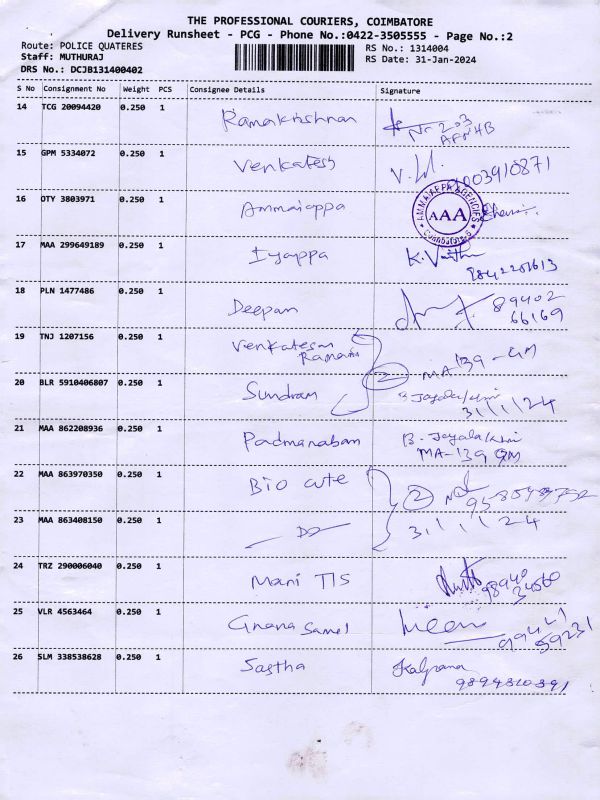 THE PROFESSIONAL COURIERS, COIMBATORE
Delivery Runsheet - PCG - Phone No.:0422-3505555 - Page No.:2
Route: POLICE QUATERES
RS No.: 1314004
Staff: MUTHURAJ
RS Date: 31-Jan-2024
DRS No.: DCJB131400402
S No Consignment No Weight PCS Consignee Details Signature
14 TCG 20094420 0.250 1 Ramakrishnan
15 GPM 5334072 0.250 1 Venkatesh
16 OTY 3803971 0.250 1 Ammaiappa
AMMAIAPPA AGENCIES
AAA
17 MAA 299649189 0.250 1 Iyappa
9842201613
18 PLN 1477486 0.250 1 Deepan
89402
66169
19 TNJ 1207156 0.250 1 Venkatesan
MA-139-GM
20 BLR 5910406807 0.250 1 Sundram 2
31/1/24
21 MAA 862208936 0.250 1 Padmanaban
MA-139 GM
22 MAA 863970350 0.250 1 Bio cute 2
23 MAA 863408150 0.250 1
31/1/24
24 TRZ 290006040 0.250 1 Mani TIS
98940
34560
25 VLR 4563464 0.250 1 Gnana Samel
99441
59231
26 SLM 338538628 0.250 1 Sastha Kalpana
9894310391